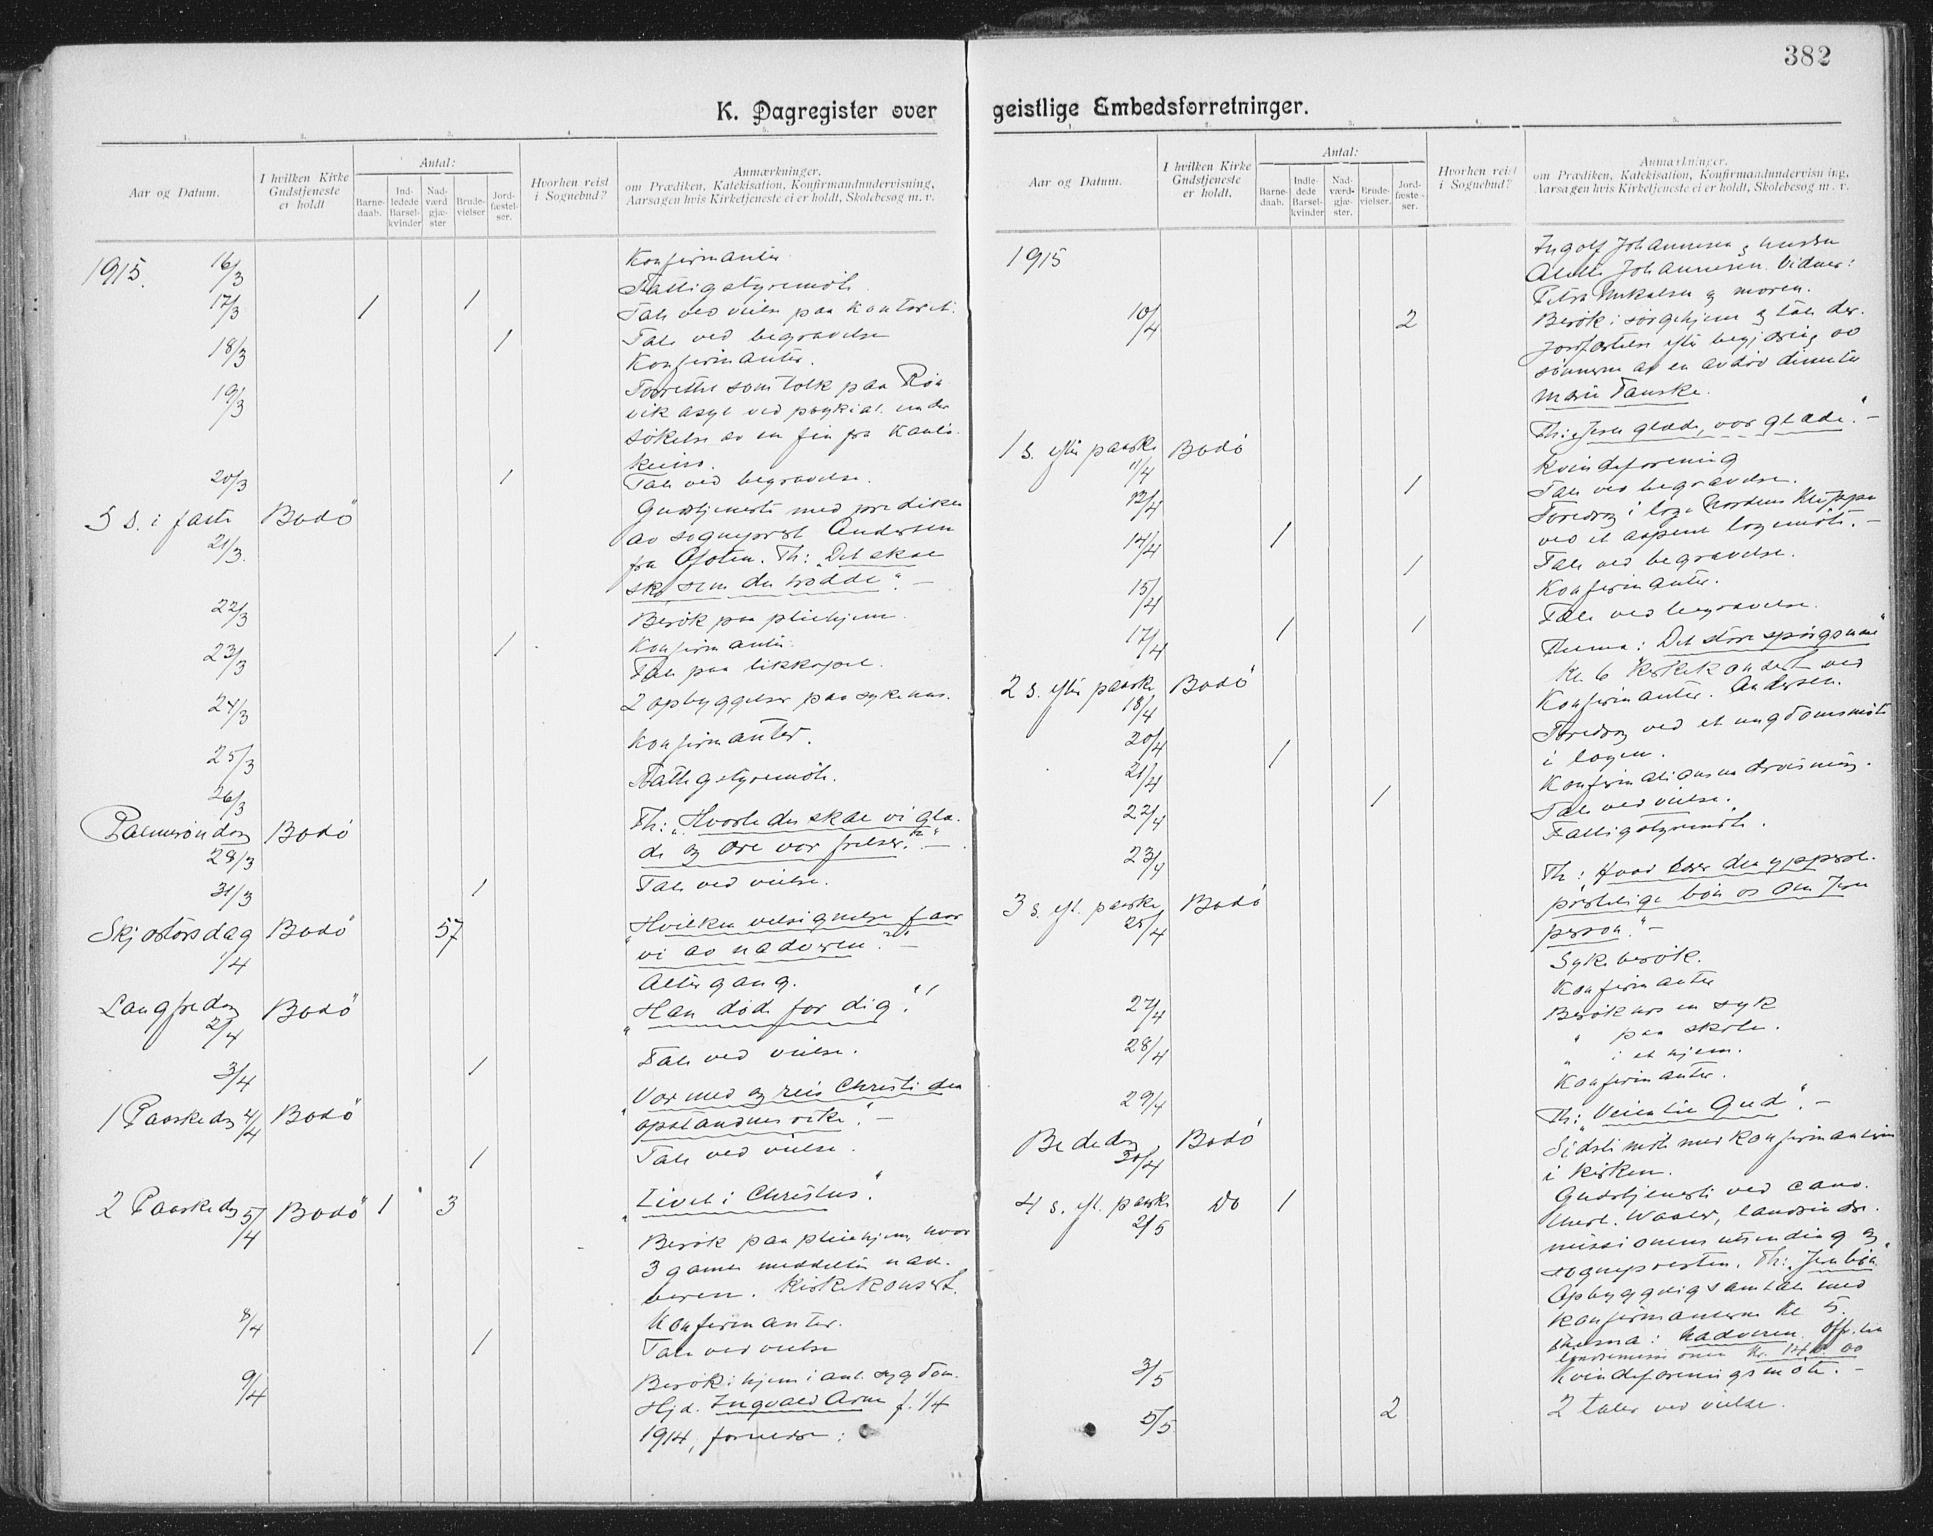 382
K. Dagregister over
1. 2. 3. 4. 5.
Aar og Datum. I hvilken Kirke Gudstjeneste er holdt Antal: Hvorhen reist i Sognebud? Anmærkninger.
om Prædiken, Katekisation, Konfirmandundervisning,
Aarsagen hvis Kirketjeneste ei er holdt, Skolebesøg m. v.
Barne-daab. Ind-ledede Barsel-kvinder Nad-værd gjæ-ster Brude-vielser Jord-fæstel-ser.
1915. 16/3 Konfirmanter
Fattigstyremöte.
17/3 1 1 Tale ved vielse paa kontoret.
18/3 1 Tale ved begravelse
Konfirmanter.
19/3 Forrettet som tolk paa Rön
vik asyl ved psykiat. under
sökelse av en fin fra Kauto
keino.
20/3 1 Tale ved begravelse.
5 s. i faste Bodö Gudstjeneste med prædiken
21/3. av sogneprest Andersen
fra Ofoten. Th: "Det skal
ske som du trodde". –
22/3 Besök paa pleiehjem.
23/3 1 Konfirmanter.
Tale paa likkapel.
24/3 2 opbyggelser paa sykehus.
25/3 Konfirmanter.
26/3 Fattigstyremöte.
Palmesöndag Bodö Th: "Hvorledes skal vi glæ-
28/3 de og ære vor frelser." –
31/3 1 Tale ved vielse.
Skjærtorsdag Bodö 57 Hvilken velsignelse faar
1/4 "vi av nadveren". –
Altergang.
Langfredag Bodö "Han döde for dig".
2/4
3/4 1 Tale ved vielse.
1 Paaskedag 4/4 Bodö "Vær med og reis Christi den
opstandnes rike". –
1 Tale ved vielse.
2 Paaskedag 5/4 Bodö 1 3 "Livet i Christus".
Besök paa pleiehjem, hvor
3 gamle meddeltes nad-
veren. Kirkekonsert.
8/4 Konfirmanter.
1 Tale ved vielse
9/4 Besök i hjem i anl. sygdom.
Hjd. Ingvald Arne f. 1/4
1914, forældre:
geistlige Embedsforretninger.
1. 2. 3. 4. 5.
Aar og Datum. I hvilken Kirke Gudstjeneste er holdt. Antal: Hvorhen reist i Sognebud? Anmærkninger.
om Prædiken, Katekisation, Konfirmandundervisning,
Aarsagen hvis Kirketjeneste ei er holdt, Skolebesøg m. v.
Barne-daab. Indle-dede Barsel-kvinder Nad-værd-gjæ-ster. Brude-vielser. Jord-fæste-ser.
1915 Ingolf Johannesen og hustru
Johannesen. Vidner:
Petra og moren.
10/4 2 Besök i sörgehjem og tale der.
Jordfæstelse efter begjæring av
sönnerne av en avdöd dissenter
Marie Fauske.
1 s. efter paaske Bodö Th: "Jesu glæde, vor glæde". –
11/4 Kvindeforening
12/4 1 Tale ved begravelse.
Foredrag i loge Nordens Klippe
14/4 1 ved et aapent logemöte. –
1 Tale ved begravelse.
15/4 Konfirmanter.
17/4 1 1 Tale ved begravelse.
2 s. efter paaske Bodö Thema: "Det store spörgsmaal"
18/4 Kl. 6 kirkekonsert ved
20/4 Konfirmanter. Andersen.
1 Foredrag ved et ungdomsmöte
21/4 i logen.
22/4 1 Konfirmationsundervisning.
Tale ved vielse.
23/4 Fattigstyremöte.
3 s. eft. paaske Bodö Th: Hvad lærer den ypperste-
25/4 præstelige bön os om Jesu
person". –
Sykebesök.
Konfirmanter
27/4 Besök hos en syk
" paa skole.
28/4 " i et hjem.
29/4 Konfirmanter.
Bededag Bodö Th: "Veien til Gud". –
30/4 Sidste möte med konfirmanterne
i kirken.
4 s. eft. paaske do 1 Gudstjeneste ved cand.
2/5 theol. Waaler, landsindre-
missionens utsending og
sognepresten. Th: "Jesu bön"
Opbyggelig samtale med
konfirmanterne kl 5.
Thema: Nadveren. Off. til
3/5 Kvindeforeningsmöte. –
5/5 2 2 taler ved vielse.